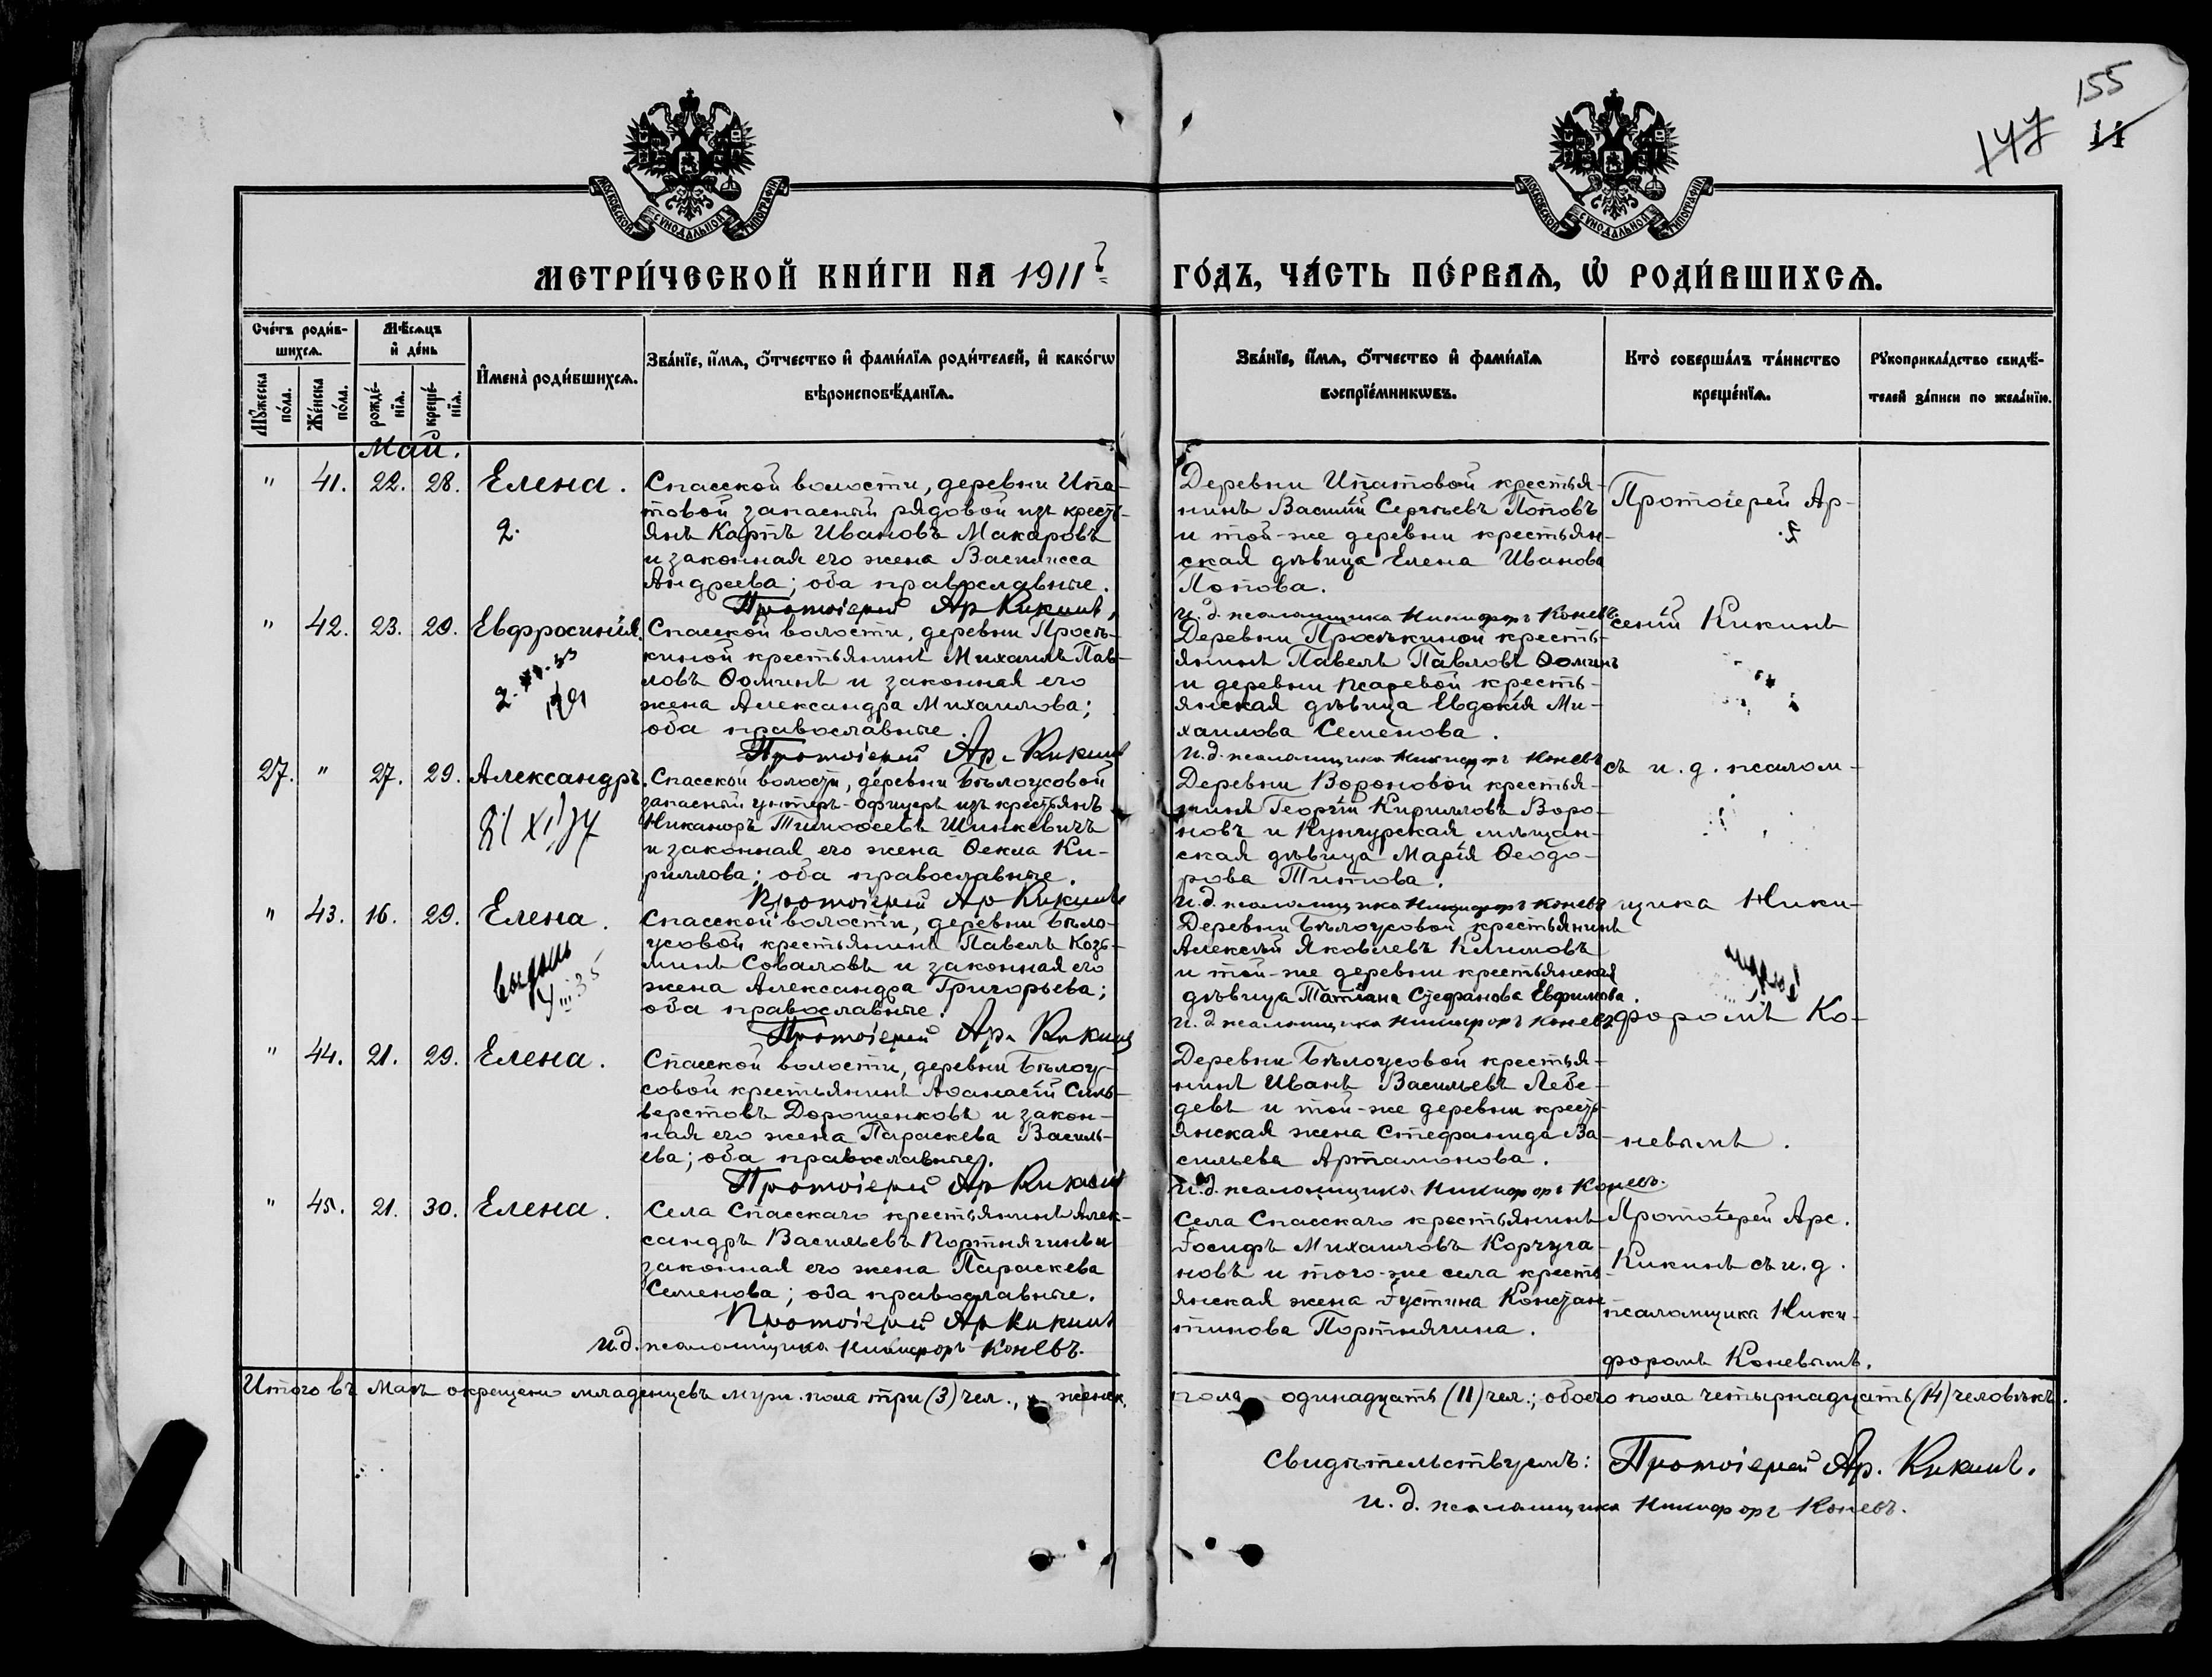 155
147 11
МОСКОВСКОЙ СѴНОДАЛЬНОЙ ТИПОГРАФІИ
МОСКОВСКОЙ СѴНОДАЛЬНОЙ ТИПОГРАФІИ
МЕТРИ́ЧЕСКОЙ КНИ́ГИ НА 1911 г. ГО́ДЪ, ЧА́СТЬ ПЕ́РВАѦ, Ѡ҆ РОДИ́ВШИХСѦ.
Сче́тъ роди́в-
шихсѧ.
Мꙋ́жеска по́ла.
Же́нска по́ла.
Мѣ́сѧцъ
и҆ де́нь
рожде́-
нїѧ.
креще́-
нїѧ.
И҆мена̀ роди́вшихсѧ.
Зва́нїе, и҆́мѧ, ѻ҆́тчество и҆ фами́лїѧ роди́телей, и҆ како́гѡ
вѣроисповѣ́данїѧ.
Зва́нїе, и҆́мѧ, ѻ҆́тчество и҆ фами́лїѧ
воспрїе́мникѡвъ.
Кто̀ соверша́лъ та́инство
креще́нїѧ.
Рꙋкоприкла́дство свидѣ́-
телей за́писи по жела́нїю.
Май.
" 41. 22. 28. Елена.
2.
Спасской волости, деревни Ипа-
товой запасный рядовой изъ кресть-
янъ Карпъ Ивановъ Макаровъ
и законная его жена Василисса
Андреева; оба православные.
Протоіерей Ар Кикинъ,
Деревни Ипатовой крестья-
нинъ Василій Сергѣевъ Поповъ
и той-же деревни крестьян-
ская дѣвица Елена Иванова
Попова.
И.д. псаломщика Никифоръ Коневъ.
Протоіерей Ар-
" 42. 23. 29. Евфросинія.
2.
Спасской волости, деревни Просѣ-
киной крестьянинъ Михаилъ Пав-
ловъ Ѳоминъ и законная его
жена Александра Михаилова;
оба православные.
Протоіерей Ар. Кикинъ
Деревни Просѣкиной кресть-
янинъ Павелъ Павловъ Ѳоминъ
и деревни Псаревой кресть-
янская дѣвица Евдокія Ми-
хаилова Семенова.
И.д. псаломщика Никифоръ Коневъ
сеній Кикинъ
27. " 27. 29. Александръ.
Спасской волости, деревни Бѣлоусовой
запасный унтеръ-офицеръ изъ крестьянъ
Никаноръ Тимоѳеевъ Шинкевичъ
и законная его жена Ѳекла Ки-
риллова; оба православные.
Протоіерей Ар Кикинъ
Деревни Вороновой крестья-
нинъ Георгій Кирилловъ Воро-
новъ и Кунгурская мѣщан-
ская дѣвица Марія Ѳеодо-
рова Титова.
И.д. псаломщика Никифоръ Коневъ
съ и.д. псалом-
" 43. 16. 29. Елена.
VIII 35
Спасской волости, деревни Бѣло-
усовой крестьянинъ Павелъ Козь-
минъ Соваловъ и законная его
жена Александра Григорьева;
оба православные.
Протоіерей Ар. Кикинъ
Деревни Бѣлоусовой крестьянинъ
Алексѣй Яковлевъ Климовъ
и той-же деревни крестьянская
дѣвица Татіана Стефанова Евфимова.
И.д. псаломщика Никифоръ Коневъ
щика Ники-
форомъ Ко-
" 44. 21. 29. Елена.
Спасской волости, деревни Бѣлоу-
совой крестьянинъ Аѳанасій Силь-
верстовъ Дорошенковъ и закон-
ная его жена Параскева Василь-
ева; оба православные.
Протоіерей Ар Кикинъ
Деревни Бѣлоусовой крестья-
нинъ Иванъ Васильевъ Лебе-
девъ и той-же деревни кресть-
янская жена Стефанида Ва-
сильева Артамонова.
И.д. псаломщика Никифоръ Коневъ.
невымъ.
" 45. 21. 30. Елена.
Села Спасскаго крестьянинъ Алек-
сандръ Васильевъ Портнягинъ и
законная его жена Параскева
Семенова; оба православные.
Протоіерей Ар Кикинъ
и.д. псаломщика Никифоръ Коневъ.
Села Спасскаго крестьянинъ
Іосифъ Михаиловъ Корчуга-
новъ и того-же села кресть-
янская жена Іустина Констан-
тинова Портнягина.
Протоіерей Арс.
Кикинъ съ и.д.
псаломщика Ники-
форомъ Коневымъ.
Итого въ Маѣ окрещено младенцевъ муж. пола три (3) чел., и женск. пола одинадцать (11) чел.; обоего пола четырнадцать (14) человѣкъ.
Свидѣтельствуемъ: Протоіерей Ар. Кикинъ.
И. д. псаломщика Никифоръ Коневъ.